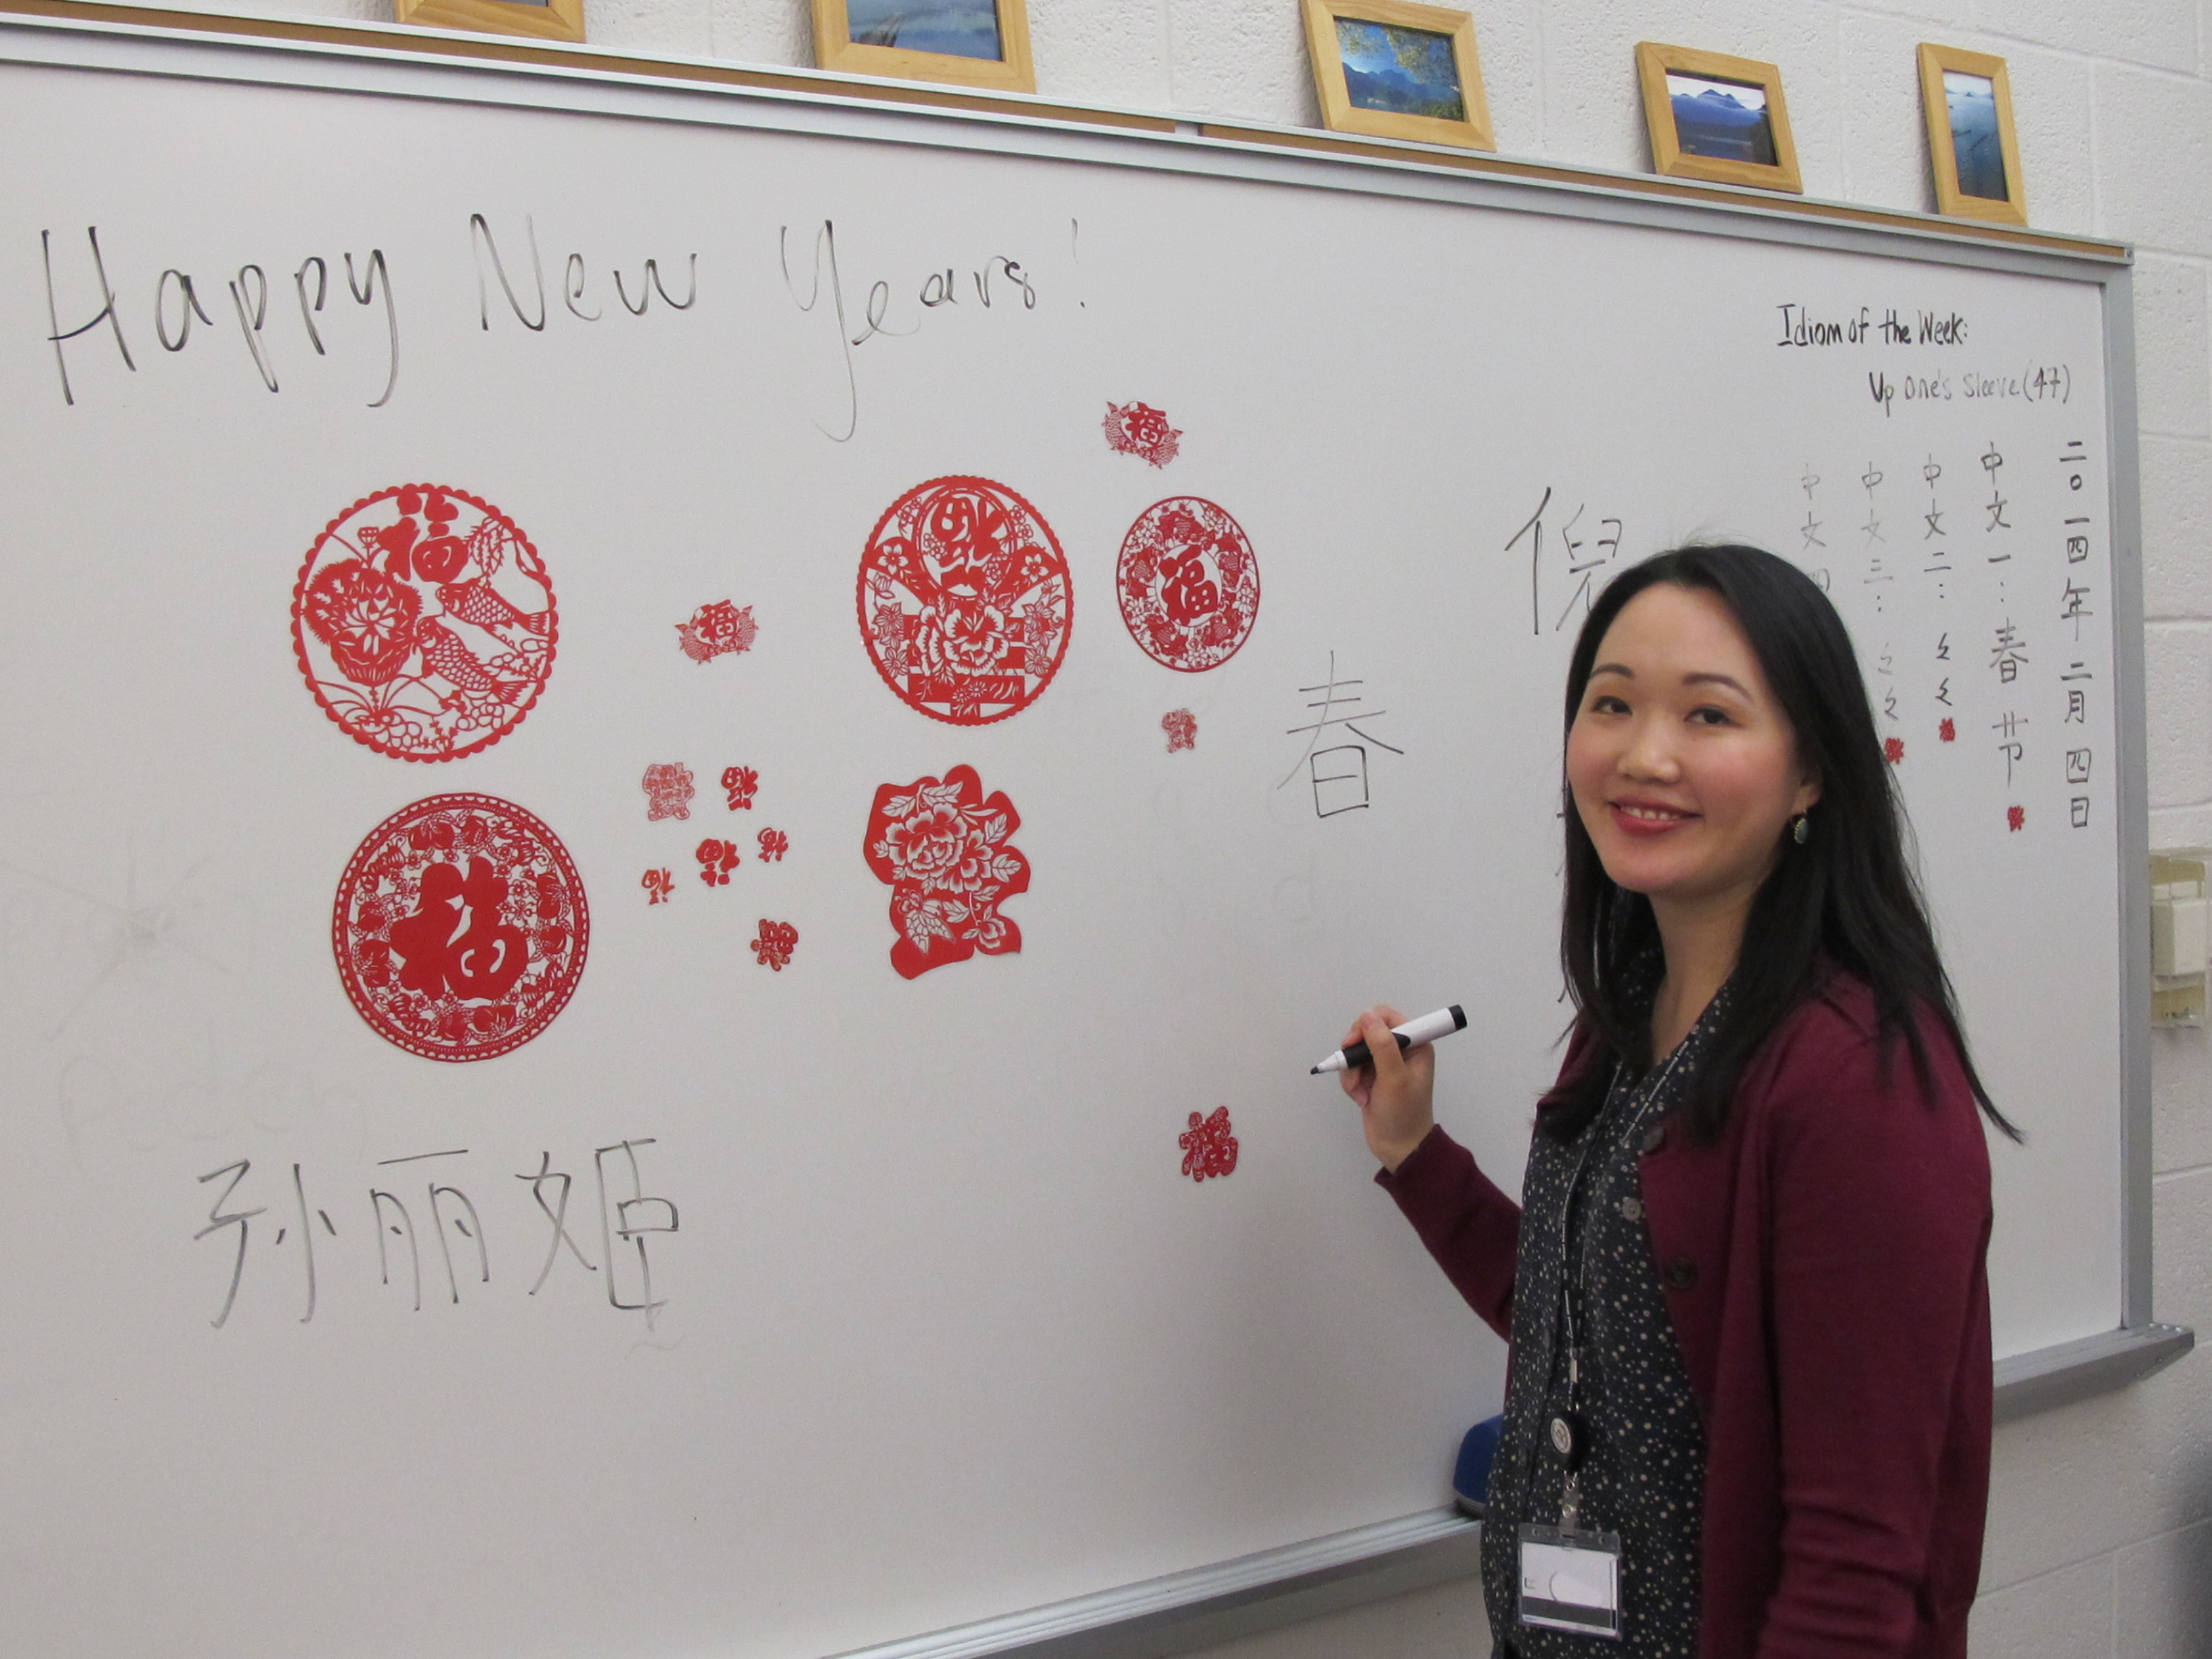 Happy New Years!
Idiom of the Week:
Up One's Sleeve (47)
二〇一四年二月四日
中文一：春节
中文二：
中文三：
中文
倪
春
福
福
福
福
福
福
福
孙丽姬